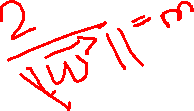 2
‖w⃗‖ = m